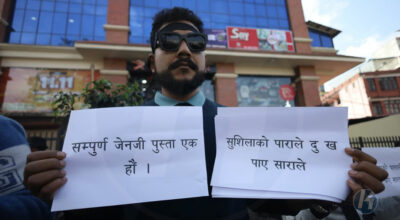 सम्पुर्ण जेनजी पुस्ता एक
हौं ।
सुशिलाको पाराले दु ख
पाए साराले